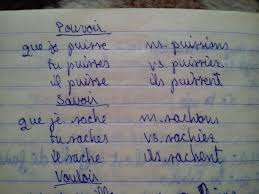 Pouvoir
que je puisse ns. puissions
tu puisses vs. puissiez
il puisse ils puissent
Savoir
que je sache ns. sachons
tu saches vs. sachiez
il sache ils sachent
Vouloir